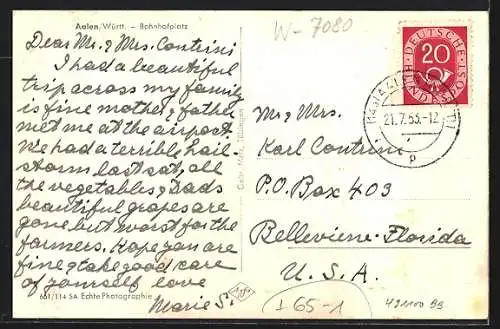 Aalen/Württ. – Bahnhofplatz
Dear Mr. & Mrs. Contrini
I had a beautiful
trip across my family
is fine mother & father
met me at the airport.
We had a terrible hail-
storm last sat, all
the vegetables & Dads
beautiful grapes are
gone but worst for the
farmers. Hope you are
fine & take good care
of yourself love
Marie S.
661/114 SA Echte Photographie
Gebr. Metz, Tübingen
W-7080
DEUTSCHE POST
20
BUNDESPOST
21.7.53.-12
p
Mr & Mrs.
Karl Contrini
P.O. Box 403
Belleviene-Florida
U.S.A.
I 65-1